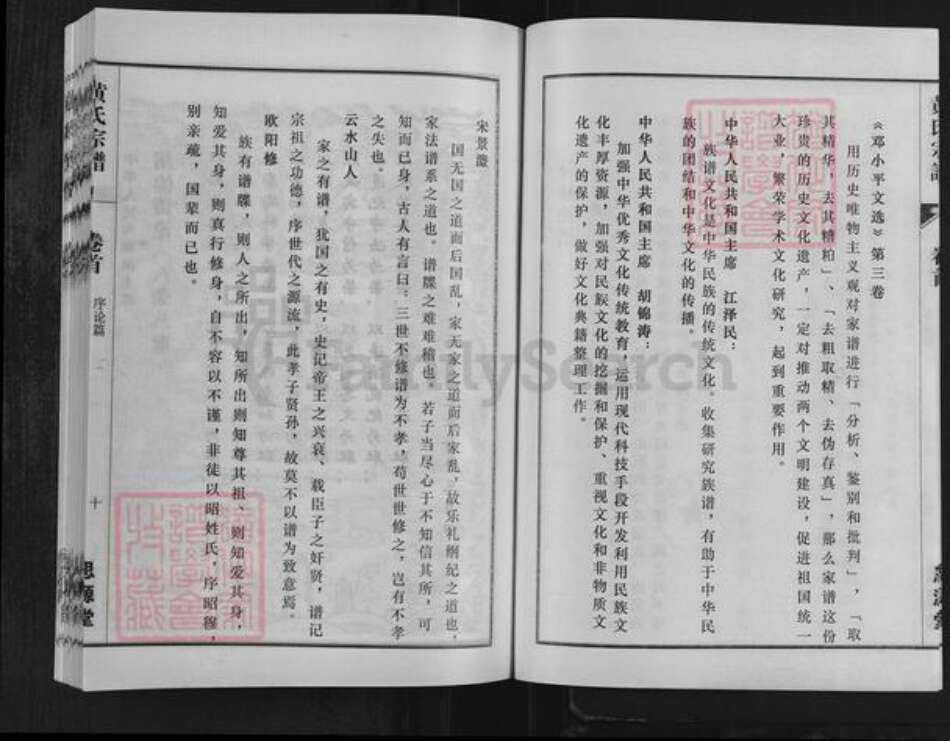 《邓小平文选》第三卷
用历史唯物主义观对家谱进行「分析、鉴别和批判」，「取
其精华，去其糟粕」、「去粗取精、去伪存真」，那么家谱这份
珍贵的历史文化遗产，一定对推动两个文明建设，促进祖国统一
大业，繁荣学术文化研究，起到重要作用。
中华人民共和国主席 江泽民：
族谱文化是中华民族的传统文化。收集研究族谱，有助于中华民
族的团结和中华文化的传播。
中华人民共和国主席 胡锦涛：
加强中华优秀文化传统教育，运用现代科技手段开发利用民族文
化丰厚资源，加强对民族文化的挖掘和保护、重视文化和非物质文
化遗产的保护，做好文化典籍整理工作。
宋景濂
国无国之道而后国乱，家无家之道而后家乱，故乐礼纲纪之道也，
家法谱系之道也。谱牒之难难稽也。若子当尽心于不知信其所，可
知而已身，古人有言曰：三世不修谱为不孝，苟世世修之，岂有不孝
之失也。
云水山人
家之有谱，犹国之有史，史记帝王之兴衰、载臣子之奸贤，谱记
宗祖之功德，序世代之源流，此孝子贤孙，故莫不以谱为致意焉。
欧阳修
族有谱牒，则人之所出，知所出则知尊其祖、则知爱其身，
知爱其身，则真行修身，自不容以不谨，非徒以昭姓氏，序昭穆，
别亲疏，国荤而已也。
黄氏宗谱
卷首
序论篇
十
思源堂
FamilySearch